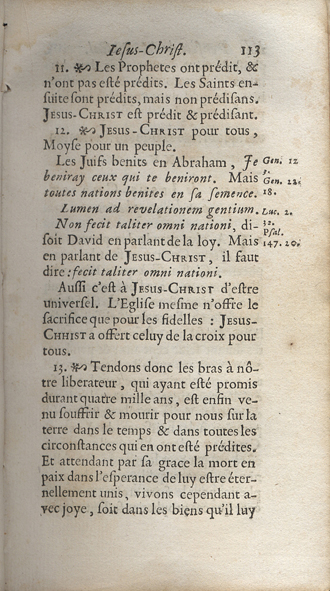 Iesus-Christ. 113
11. ❧ Les Prophetes ont prédit, &
n'ont pas esté prédits. Les Saints en-
suite sont prédits, mais non prédisans.
JESUS-CHRIST est prédit & prédisant.
12. ❧ JESUS-CHRIST pour tous,
Moyse pour un peuple.
Les Juifs benits en Abraham, Je
beniray ceux qui te beniront. Mais
toutes nations benites en sa semence.
Lumen ad revelationem gentium.
Non fecit taliter omni nationi, di-
soit David en parlant de la loy. Mais
en parlant de JESUS-CHRIST, il faut
dire : fecit taliter omni nationi.
Aussi c'est à JESUS-CHRIST d'estre
universel. L'Eglise mesme n'offre le
sacrifice que pour les fidelles : JESUS-
CHHIST a offert celuy de la croix pour
tous.
13. ❧ Tendons donc les bras à nô-
tre liberateur, qui ayant esté promis
durant quatre mille ans, est enfin ve-
nu souffrir & mourir pour nous sur la
terre dans le temps & dans toutes les
circonstances qui en ont esté prédites.
Et attendant par sa grace la mort en
paix dans l'esperance de luy estre éter-
nellement unis, vivons cependant a-
vec joye, soit dans les biens qu'il luy
Gen. 12
3.
Gen. 22.
18.
Luc. 2.
32.
Psal.
147. 20.